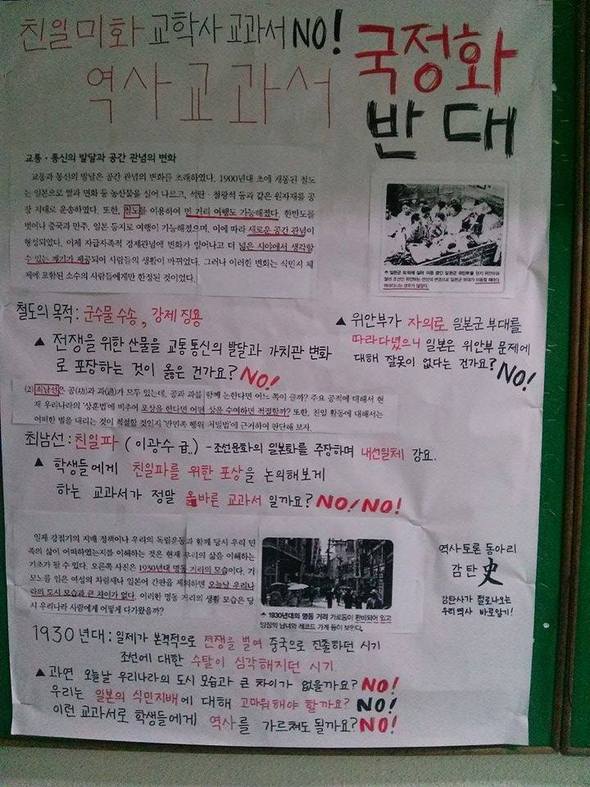 친일미화 교학사 교과서 NO!
역사 교과서
국정화
반대
교통 · 통신의 발달과 공간 관념의 변화
교통과 통신의 발달은 공간 관념의 변화를 초래하였다. 1900년대 초에 개통된 철도
는 일본으로 쌀과 면화 등 농산물을 실어 나르고, 석탄 · 철광석 등과 같은 원자재를 공
장 지대로 운송하였다. 또한, 철도를 이용하여 먼 거리 여행도 가능해졌다. 한반도를
벗어나 중국과 만주, 일본 등지로 여행이 가능해졌으며, 이에 따라 새로운 공간 관념이
형성되었다. 이제 자급자족적 경제관념에 변화가 일어나고 더 넓은 시야에서 생각할
수 있는 계기가 제공되어 사람들의 생활이 바뀌었다. 그러나 이러한 변화는 식민지 체
제에 포함된 소수의 사람들에게만 한정된 것이었다.
철도의 목적: 군수물 수송, 강제 징용
▲ 전쟁을 위한 산물을 교통통신의 발달과 가치관 변화
로 포장하는 것이 옳은 건가요? NO!
▲ 위안부가 자의로 일본군 부대를
따라다녔으니 일본은 위안부 문제에
대해 잘못이 없다는 건가요? NO!
(2) 최남선은 공(功)과 과(過)가 모두 있는데, 공과 과를 함께 논한다면 어느 쪽이 클까? 주요 공적에 대해서 현
재 우리나라의 '상훈법'에 비추어 포상을 한다면 어떤 상을 수여하면 적절할까? 또한, 친일 활동에 대해서는
어떠한 벌을 내리는 것이 적절할 것인지 '반민족 행위 처벌법'에 근거하여 판단해 보자.
최남선 : 친일파 (이광수 급..) - 조선문화의 일본화를 주장하며 내선일체 강요.
▲ 학생들에게 친일파를 위한 포상을 논의해보게
하는 교과서가 정말 올바른 교과서 일까요? NO/NO!
일제 강점기의 지배 정책이나 우리의 독립운동과 함께 당시 우리 민
족의 삶이 어떠하였는지를 이해하는 것은 현재 우리의 삶을 이해하는
기초가 될 수 있다. 오른쪽 사진은 1930년대 명동 거리의 모습이다. 기
모노를 입은 여성의 차림새나 일본어 간판을 제외하면 오늘날 우리나
라의 도시 모습과 큰 차이가 없다. 이러한 명동 거리의 생활 모습은 당
시 우리나라 사람에게 어떻게 다가왔을까?
▲ 1930년대의 명동 거리 가로등이 완비되어 있고
양장한 남녀와 레코드 가게 등이 보인다.
역사토론 동아리
감탄史
감탄사가 절로나오는
우리역사 바로알기!
1930년대 : 일제가 본격적으로 전쟁을 벌여 중국으로 진출하던 시기
조선에 대한 수탈이 심각해지던 시기
▲ 과연 오늘날 우리나라의 도시 모습과 큰 차이가 없을까요? NO!
우리는 일본의 식민지배에 대해 고마워해야 할까요? NO!
이런 교과서로 학생들에게 역사를 가르쳐도 될까요? NO!